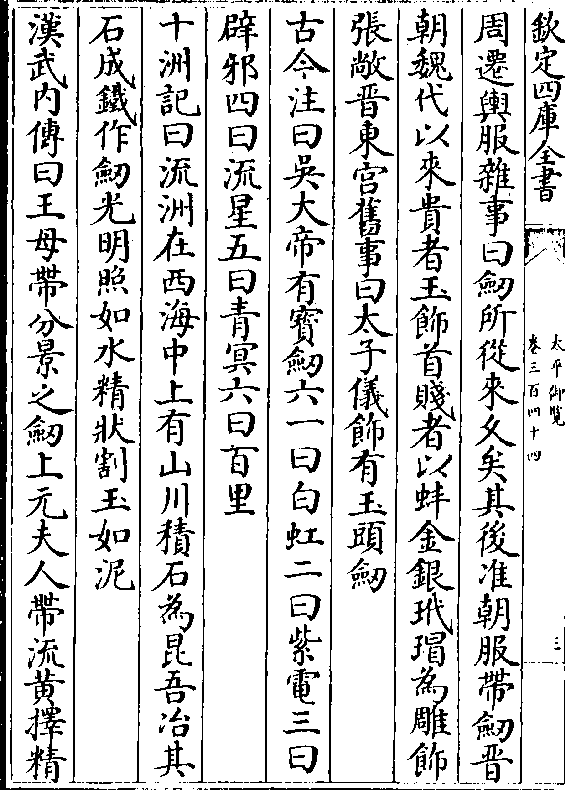 欽定四庫全書
太平御覧
卷三百四十四
三
周遷輿服雜事曰劒所從來久矣其後准朝服帶劒晋
朝魏代以來貴者玉飾首賤者以蚌金銀玳瑁為雕飾
張敞晋東宫舊事曰太子儀飾有玉頭劒
古今注曰吳大帝有寳劒六一曰白虹二曰紫電三曰
辟邪四曰流星五曰青冥六曰百里
十洲記曰流洲在西海中上有山川積石為昆吾冶其
石成鐵作劒光明照如水精狀割玉如泥
漢武内傳曰王母帶分景之劒上元夫人帶流黄擇精